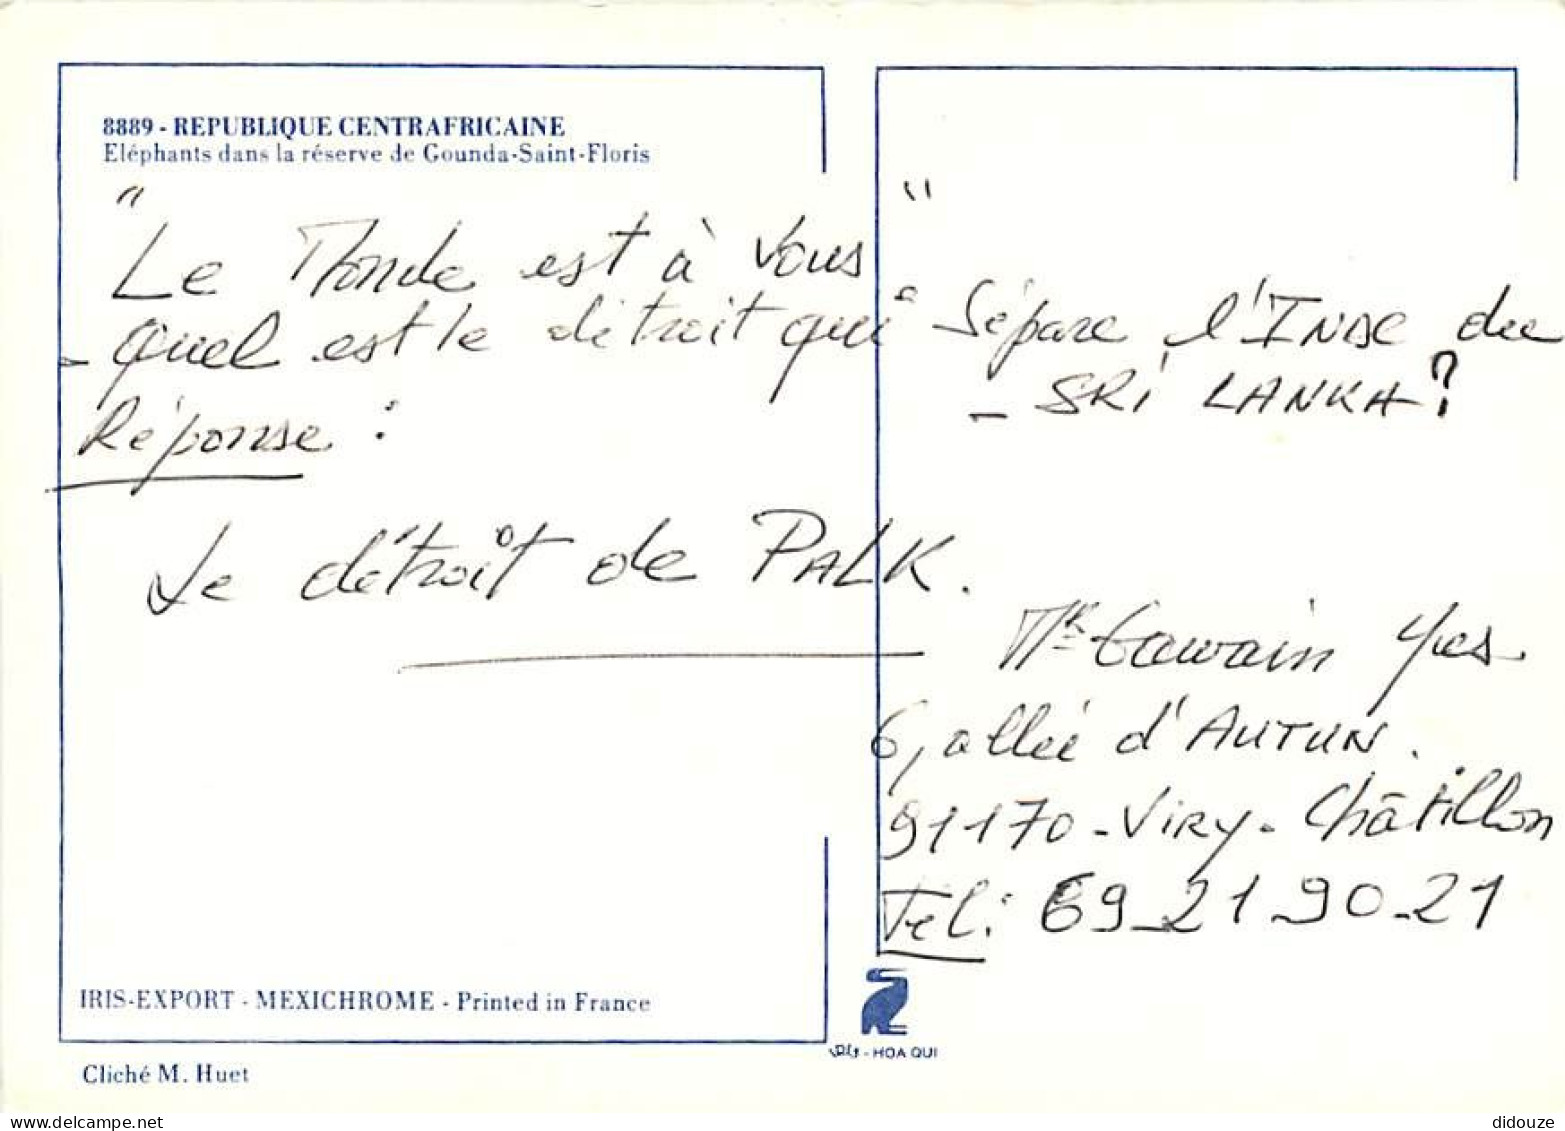 8889 - REPUBLIQUE CENTRAFRICAINE
Eléphants dans la réserve de Gounda-Saint-Floris
" Le Monde est à vous "
- Quel est le détroit qui sépare l'INDE du
- SRI LANKA?
Réponse :
Le détroit de PALK.
Mr Gawain Yves
6, allée d'AUTUN.
91170 - VIRY - Châtillon
Tel: 69_21_90_21
IRIS-EXPORT - MEXICHROME - Printed in France
- HOA QUI
Cliché M. Huet
didouze